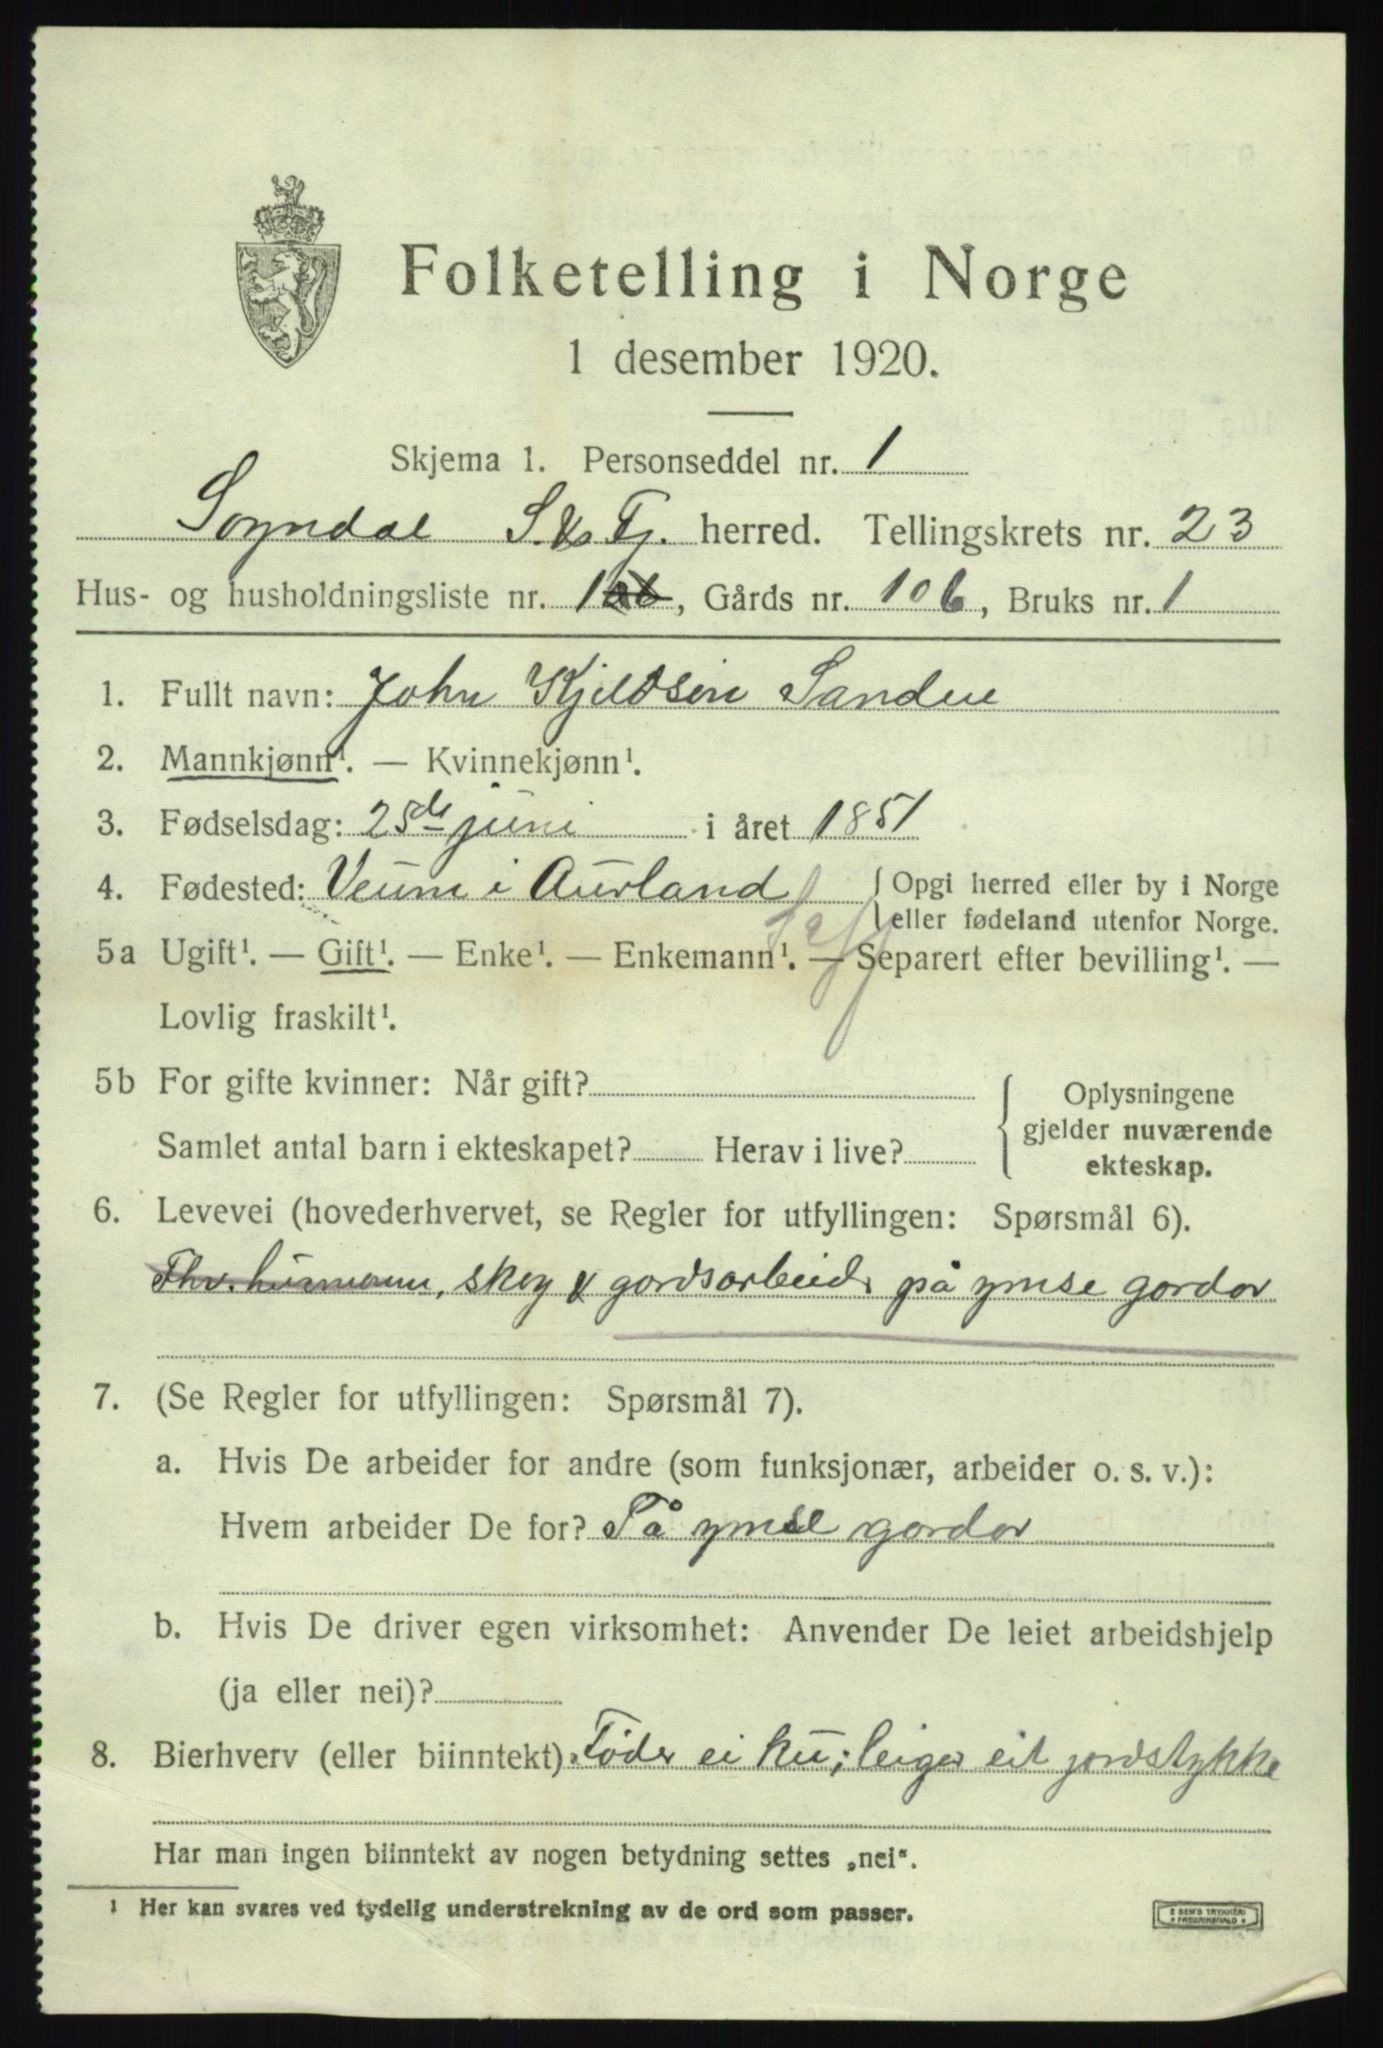 Folketelling i Norge
1 desember 1920.
Skjema 1. Personseddel nr. 1
Sogndal S. & Fj. herred. Tellingskrets nr. 23
Hus- og husholdningsliste nr. 1, Gårds nr. 106, Bruks nr. 1
1. Fullt navn: John Kjeldsen Sandee
2. Mannkjønn¹. — Kvinnekjønn¹.
3. Fødselsdag: 25de juni i året 1851
4. Fødested: Veum i Aurland {Opgi herred eller by i Norge
eller fødeland utenfor Norge.
S&Fj
5a Ugift¹. — Gift¹. — Enke¹. — Enkemann¹. — Separert efter bevilling¹. —
Lovlig fraskilt¹.
5b For gifte kvinner: Når gift?
Samlet antal barn i ekteskapet? Herav i live?
{Oplysningene
gjelder nuværende
ekteskap.
6. Levevei (hovederhvervet, se Regler for utfyllingen: Spørsmål 6).
Fhv. husmann, skog & gordsarbeide på ymse gordar
7. (Se Regler for utfyllingen: Spørsmål 7).
a. Hvis De arbeider for andre (som funksjonær, arbeider o. s. v.):
Hvem arbeider De for? På ymse gordar
b. Hvis De driver egen virksomhet: Anvender De leiet arbeidshjelp
(ja eller nei)?
8. Bierhverv (eller biinntekt) Føder ei ku; leiger eit jordstykke
Har man ingen biinntekt av nogen betydning settes „nei“.
¹ Her kan svares ved tydelig understrekning av de ord som passer.
TRYKKERI
FREDRIKSTAD